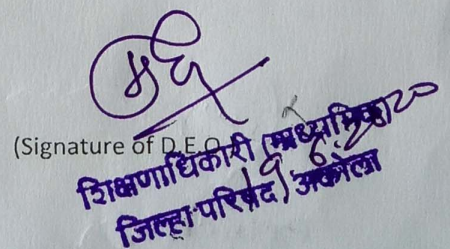 (Signature of D.E.O.
शिक्षणाधिकारी (माध्यमिक)
जिल्हा परिषद, अकोला